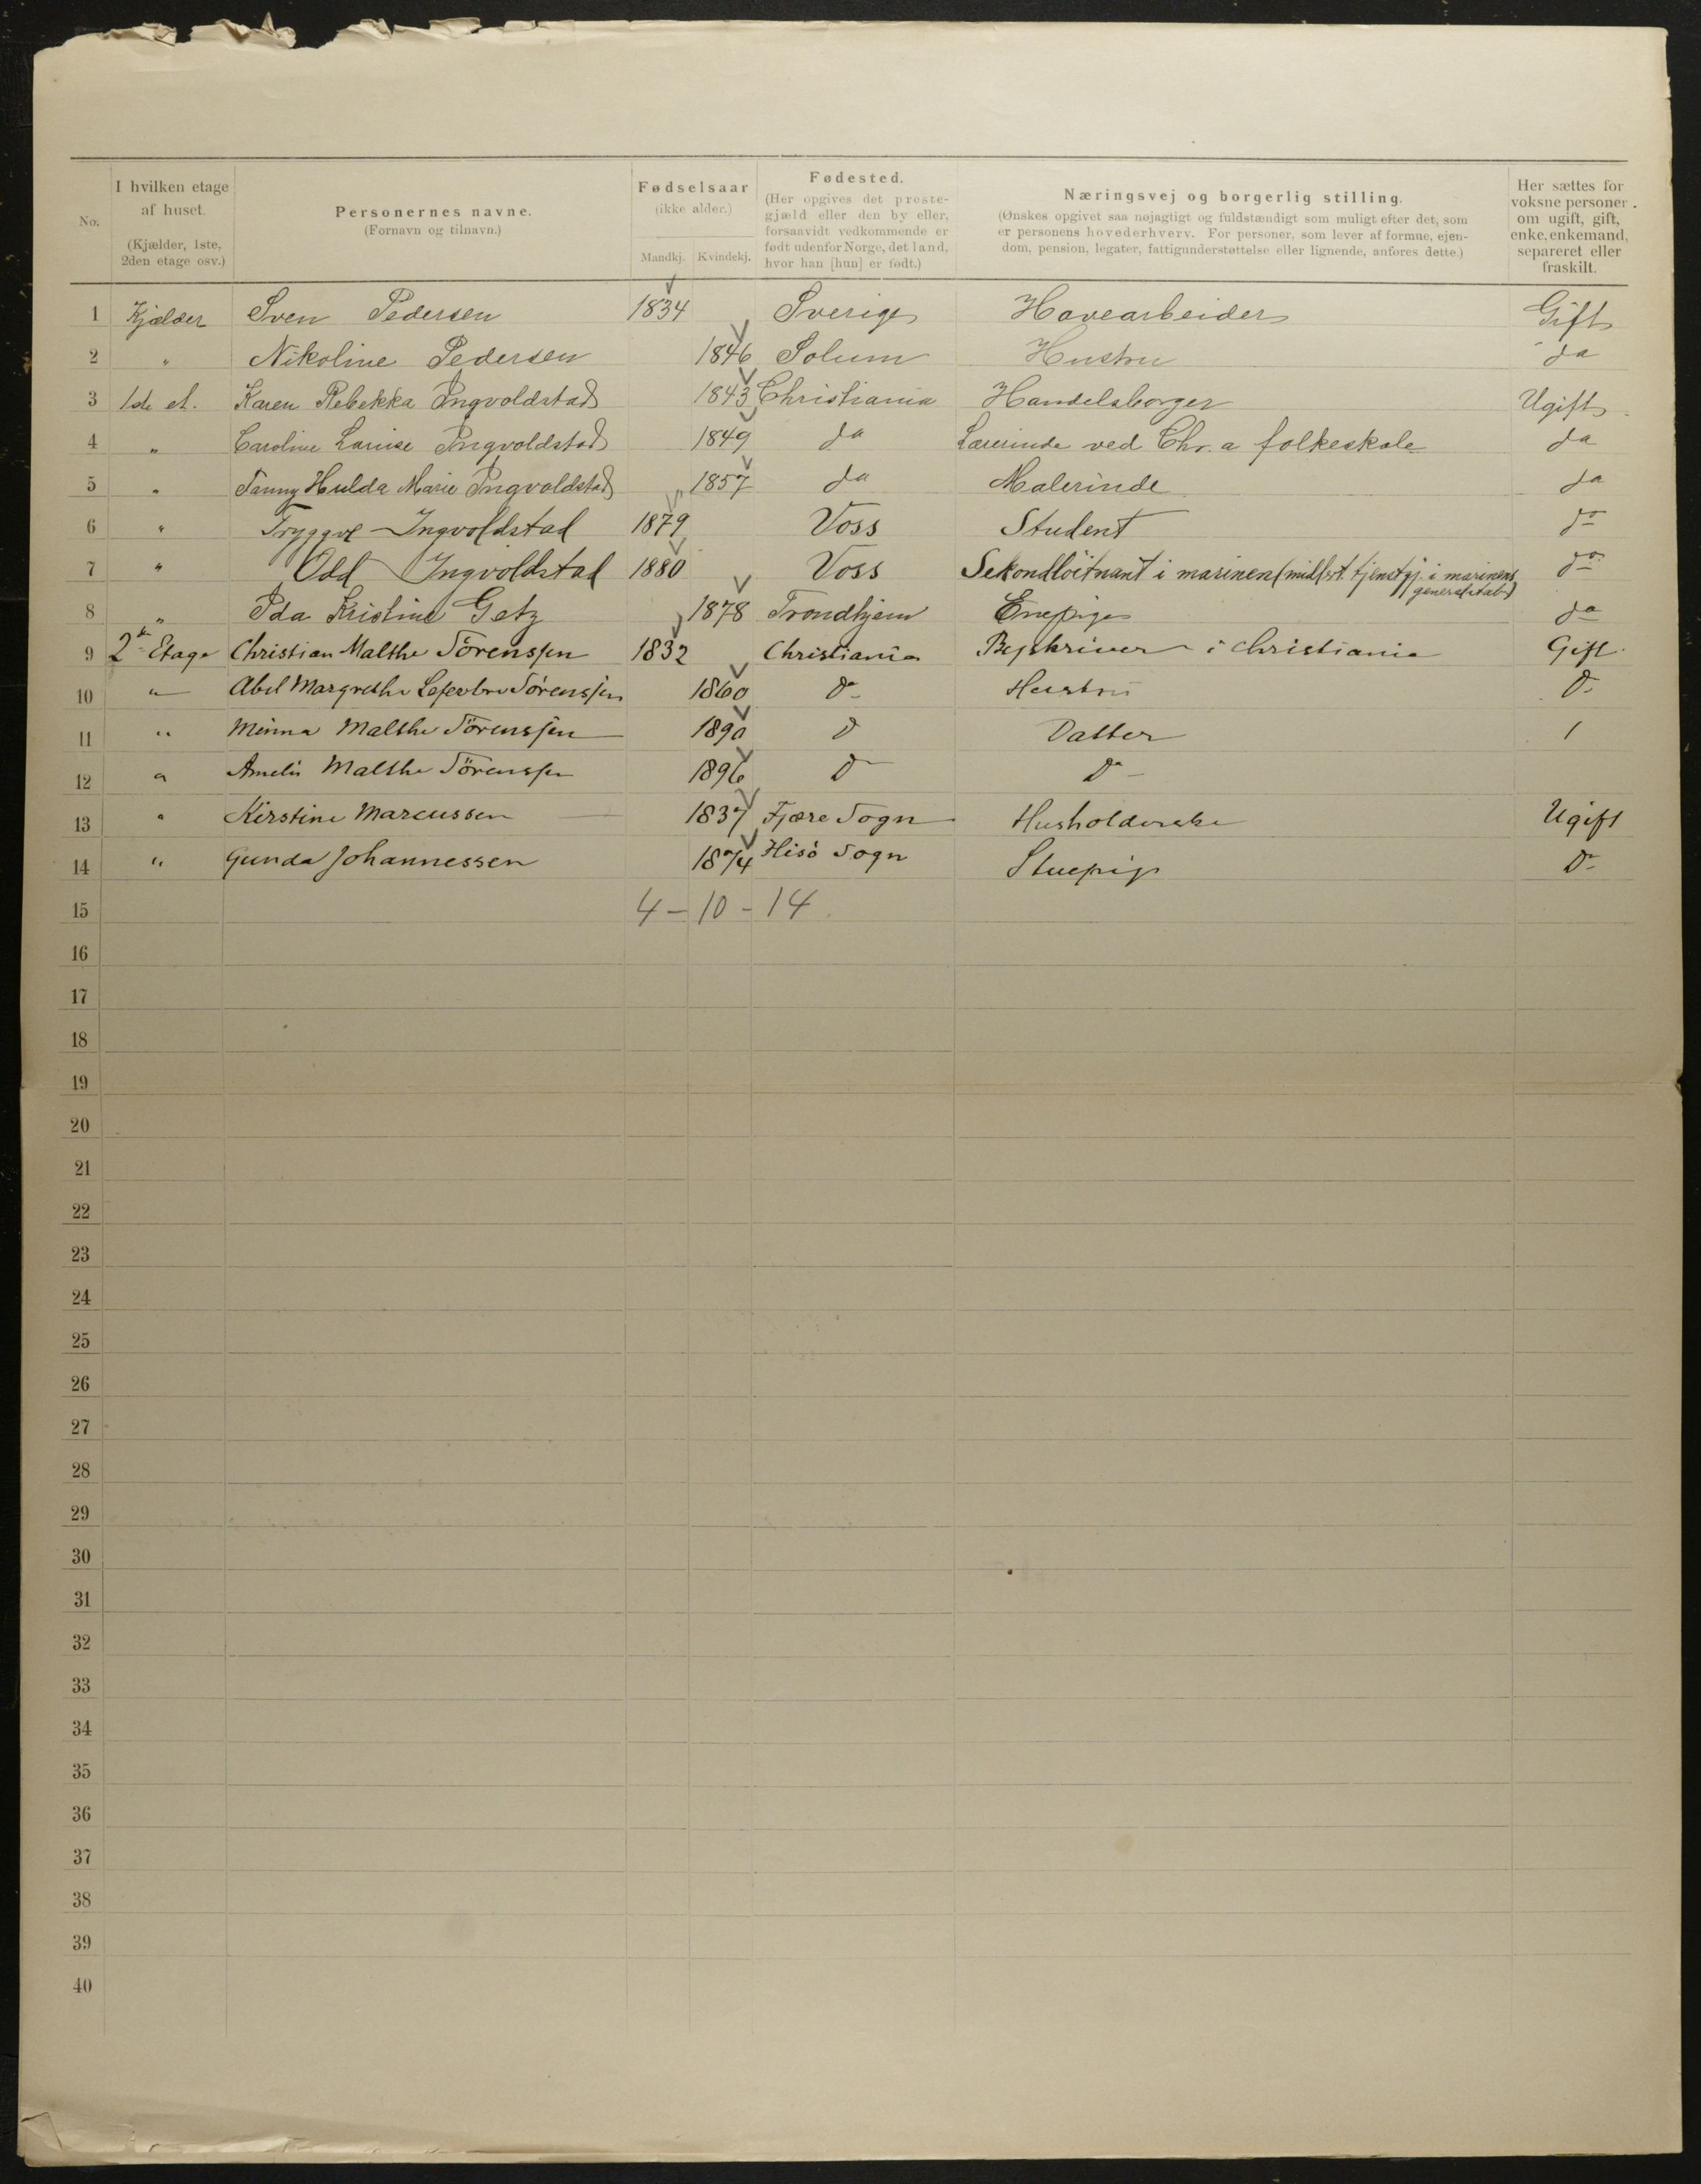 No. I hvilken etage af huset. (Kjælder, 1ste, 2den etage osv.) Personernes navne. (Fornavn og tilnavn.) Fødselsaar (ikke alder.) Mandkj. Kvindekj. Fødested. (Her opgives det prestegjæld eller den by eller, forsaavidt vedkommende er født udenfor Norge, det land, hvor han [hun] er født.) Næringsvej og borgerlig stilling. (Ønskes opgivet saa nøjagtigt og fuldstændigt som muligt efter det, som er personens hovederhverv. For personer, som lever af formue, ejendom, pension, legater, fattigunderstøttelse eller lignende, anføres dette.) Her sættes for voksne personer om ugift, gift, enke, enkemand, separeret eller fraskilt.
1 Kjælder Sven Pedersen 1834 Sverige Havearbeider Gift
2 " Nikoline Pedersen 1846 Solum Hustru do
3 1de et. Karen Rebekka Ingvoldstad 1843 Christiania Handelsborger Ugift
4 " Caroline Louise Ingvoldstad 1849 do Lærerinde ved Chr.a folkeskole do
5 " Fanny Hulda Marie Ingvoldstad 1857 do Malerinde do
6 " Tryggve Ingvoldstad 1879 Voss Student do
7 " Odd Ingvoldstad 1880 Voss Sekondløitnant i marinen (midlert. tjenstgj. i marinens generalstab) do
8 " Ida Kristine Getz 1878 Trondhjem Enepige do
9 2den Etage Christian Malthe Sörenssen 1832 Christiania Byskriver i Christiania Gift
10 " Abel Margrethe Lefevbre Sörenssen 1860 Do Hustru Do
11 " Minna Malthe Sörenssen 1890 D Datter /
12 " Amelie Malthe Sörenssen 1896 D Do
13 " Kirstine Marcussen 1837 Fjære Sogn Husholderske Ugift
14 " Gunda Johannessen 1874 Hisö Sogn Stuepige Do
15 4 – 10 – 14
16
17
18
19
20
21
22
23
24
25
26
27
28
29
30
31
32
33
34
35
36
37
38
39
40